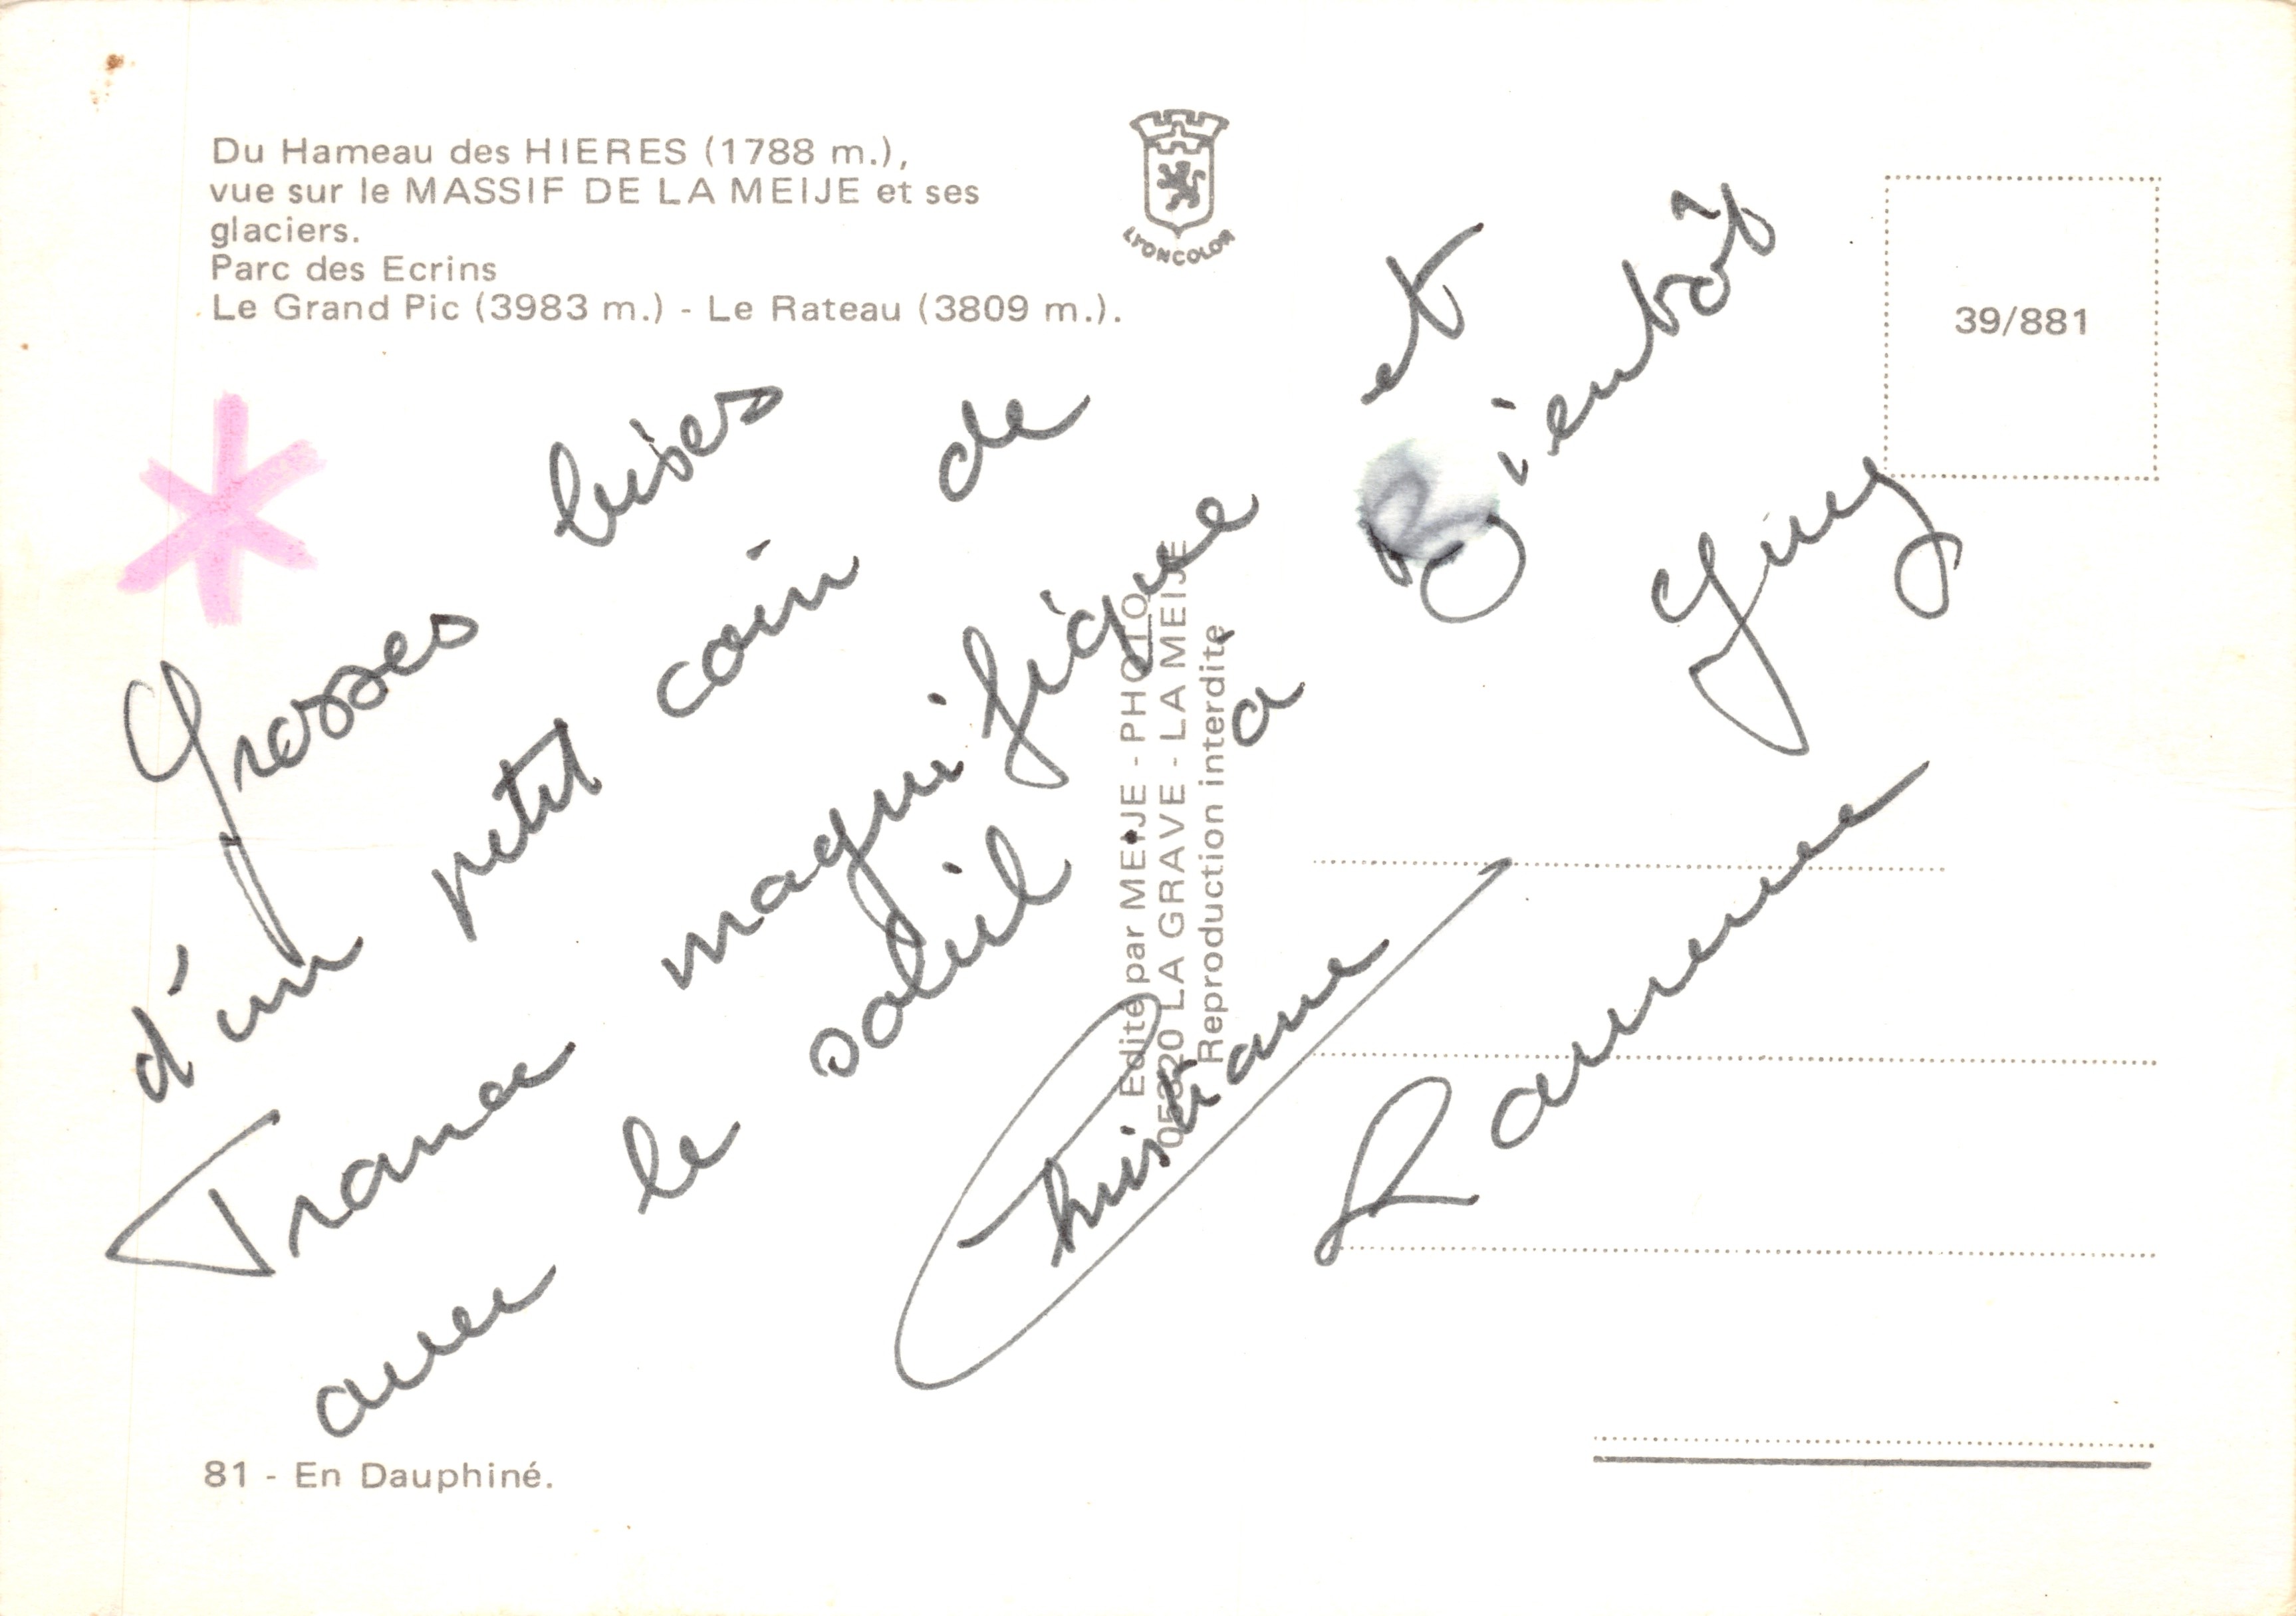 Du Hameau des HIERES (1788 m.),
vue sur le MASSIF DE LA MEIJE et ses
glaciers.
Parc des Ecrins
Le Grand Pic (3983 m.) - Le Rateau (3809 m.).
LYONCOLOR
39/881
Grosses bises
d'un petit coin de
France magnifique et
avec le soleil à Bientôt
Guy
Christiane
Edité par MEIJE - PHOTO
05320 LA GRAVE - LA MEIJE
Reproduction interdite
81 - En Dauphiné.